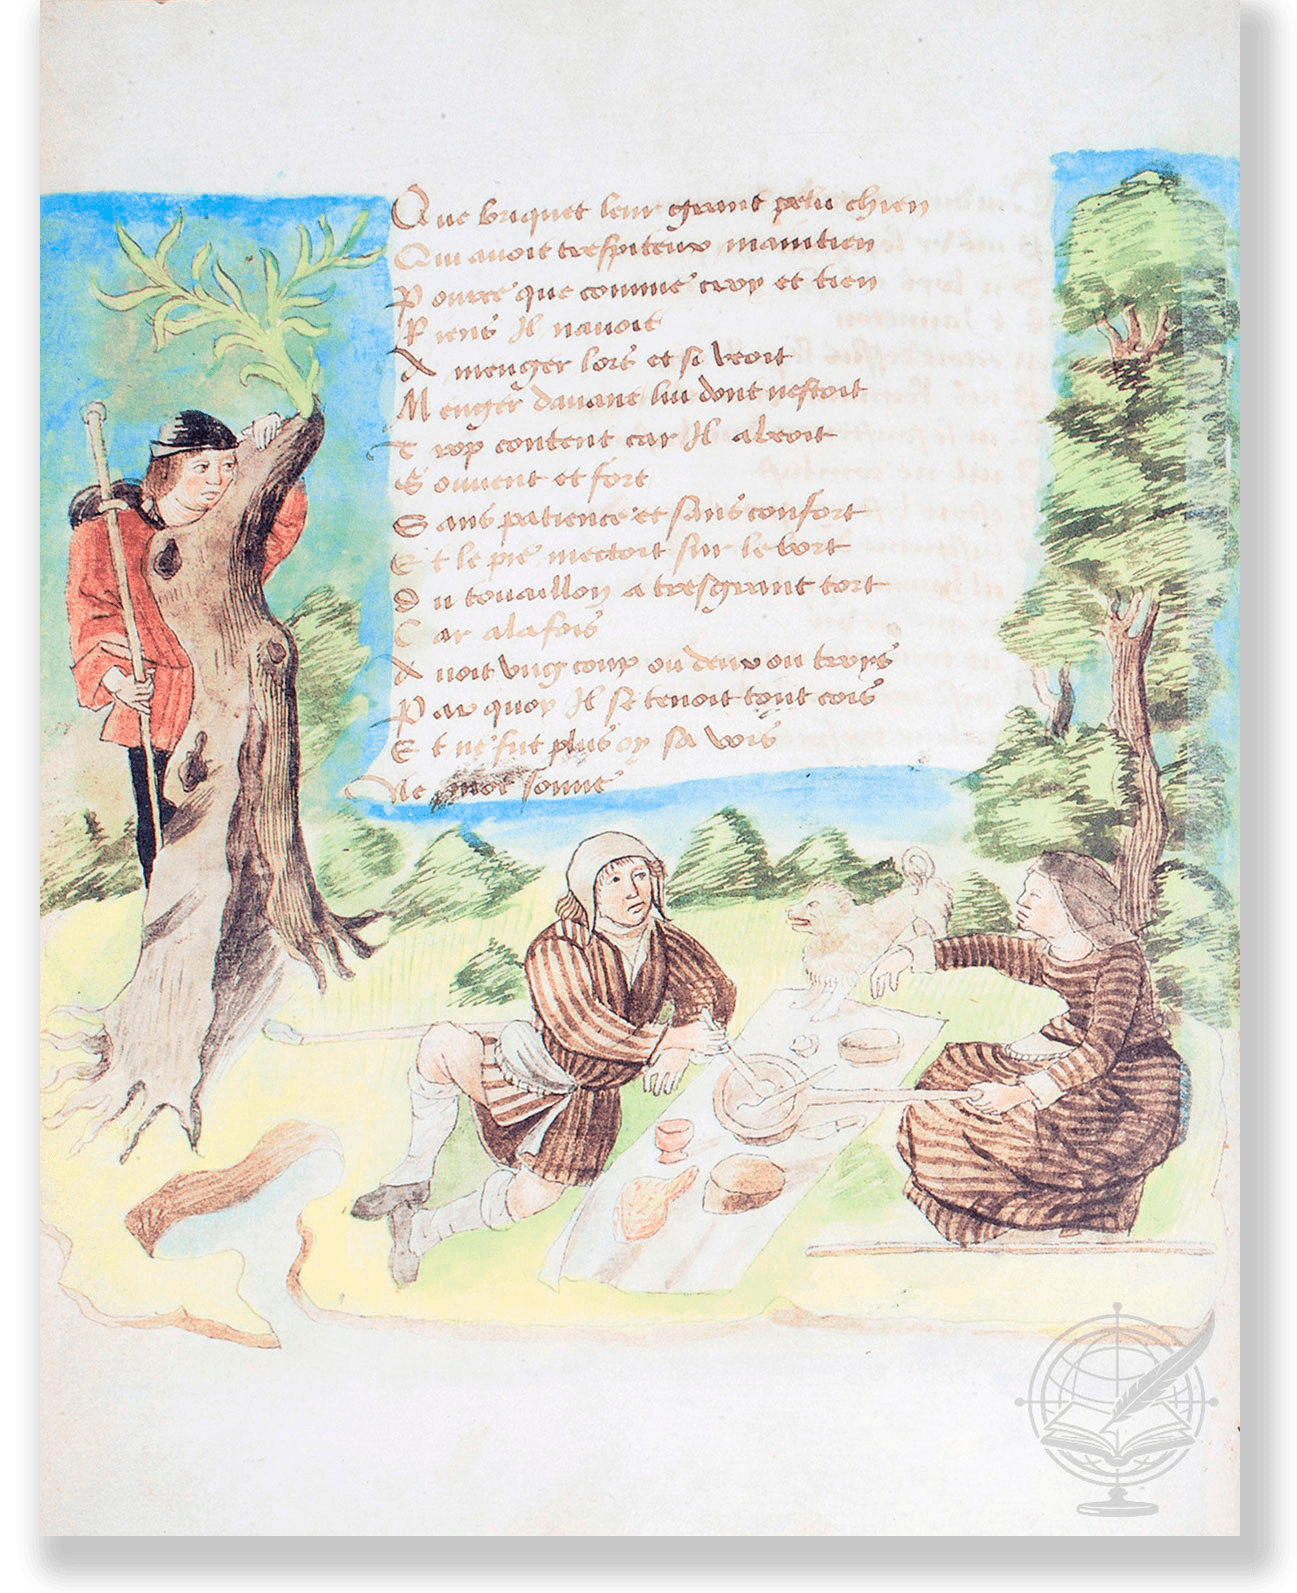 Que briquet leur grant pelu chien
Qui auoit trespiteux maintien
Pource que comme croy et tien
Riens Il nauoit
A menger lors et si veoit
Menger dauant lui dont nestoit
Trop content car Il abeoit
Souuent et fort
Sans patience et sans confort
Et le pie mectoit sur le bort
Du touaillon a tresgrant tort
Car alafois
Auoit vng coup ou deux ou troys
Par quoy Il se tenoit tout cois
Et ne fut plus oy sa vois
Ne mot sonne